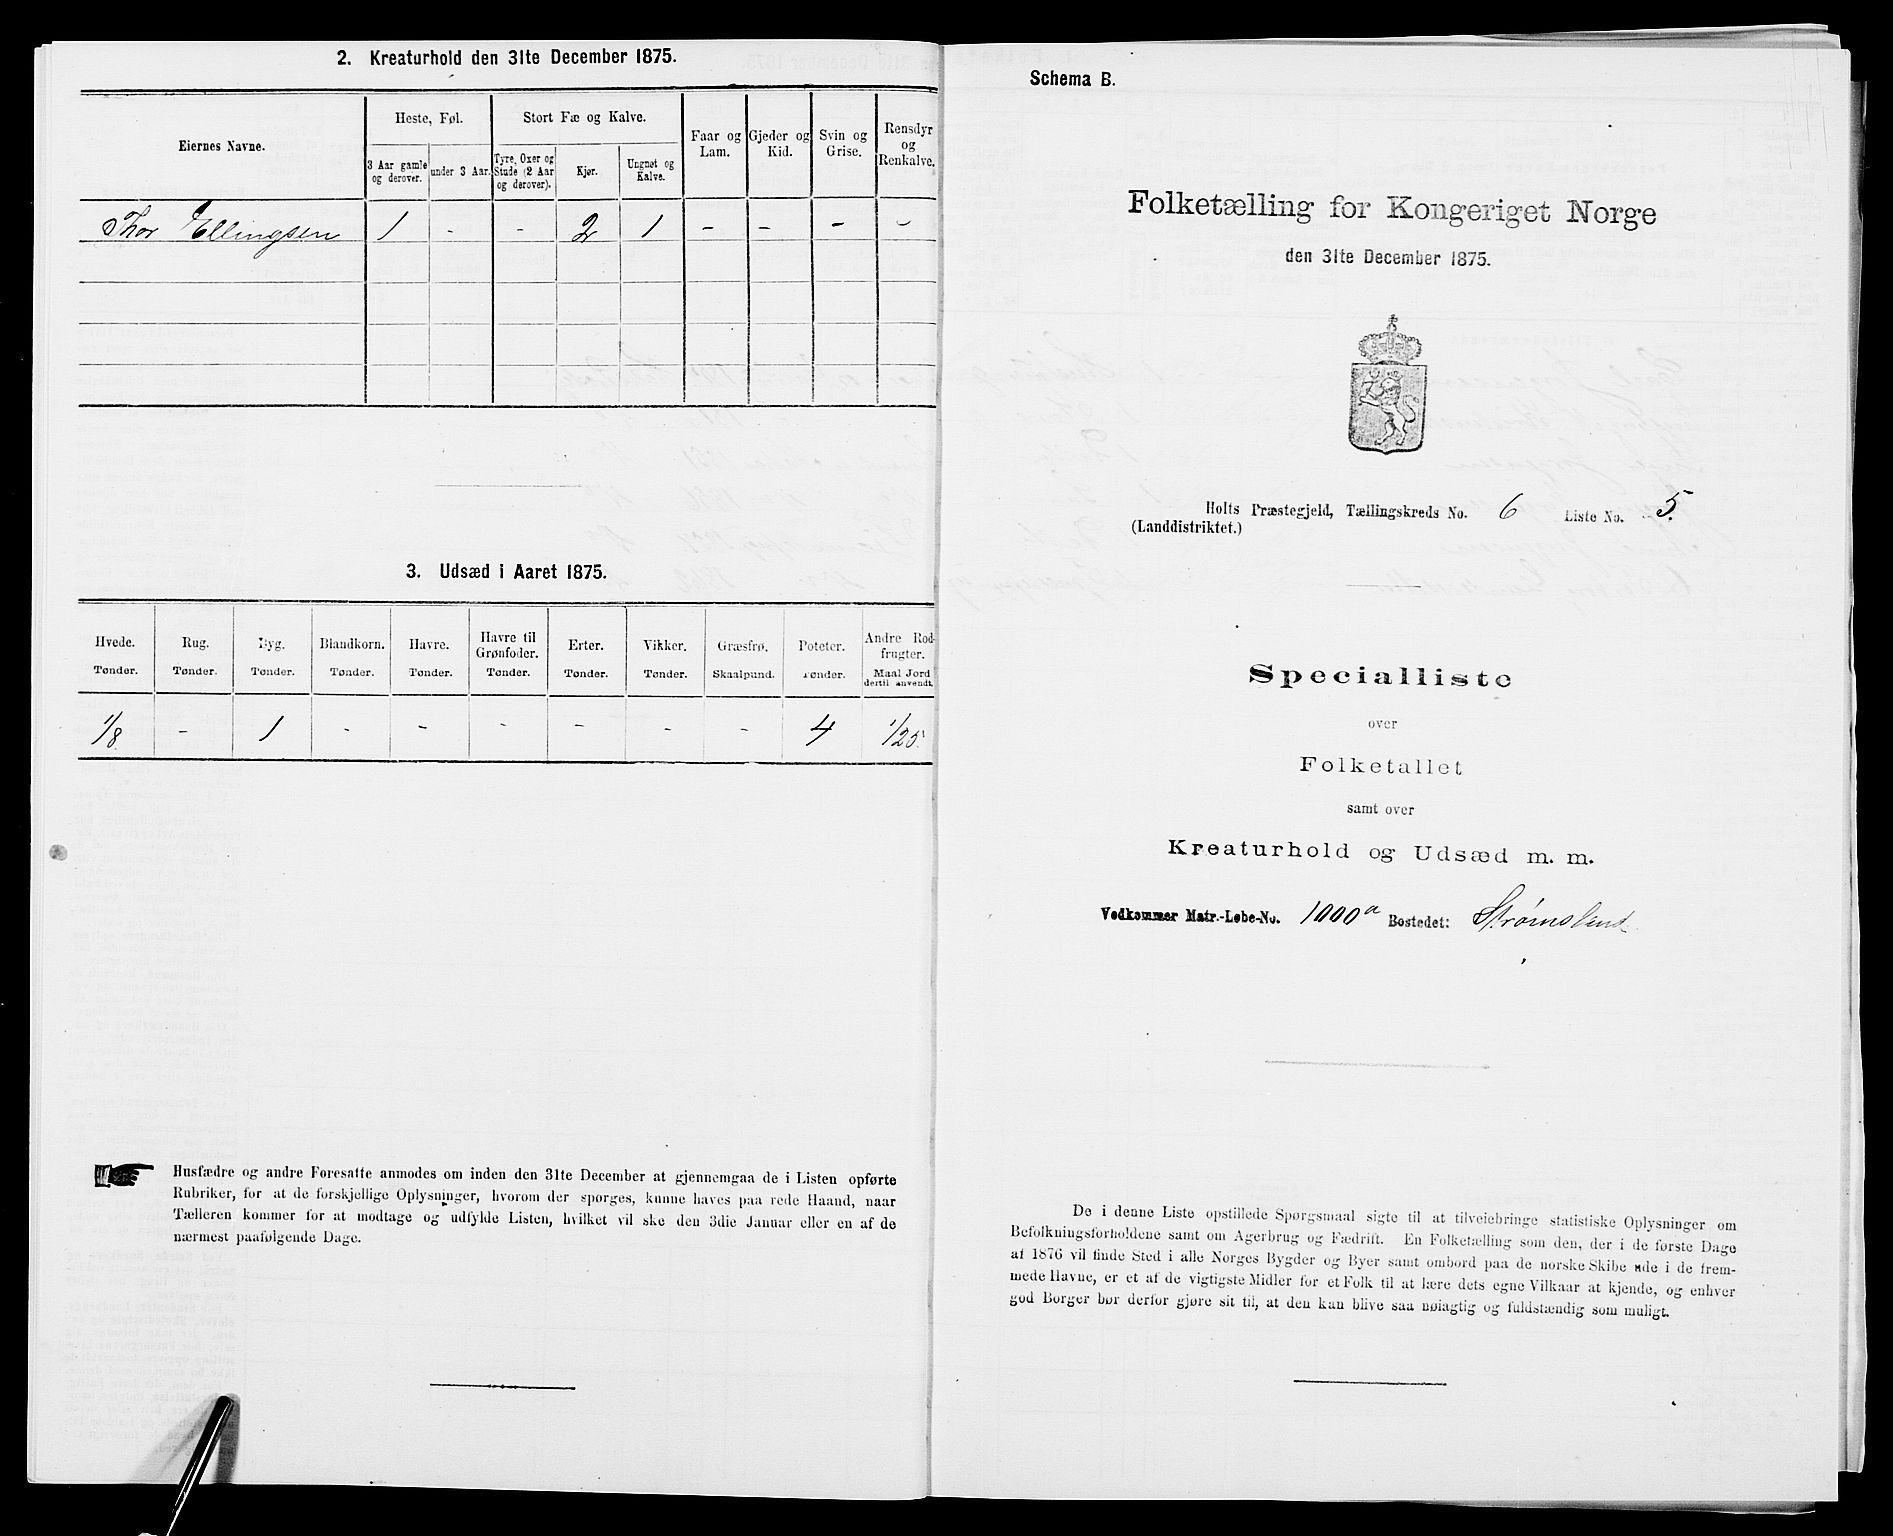 2. Kreaturhold den 31te December 1875.
Eiernes Navne.
Heste, Føl.
Stort Fæ og Kalve.
Faar og
Lam.
Gjeder og
Kid.
Svin og
Grise.
Rensdyr
og
Renkalve.
3 Aar gamle
og derover.
under 3 Aar.
Tyre, Oxer og
Stude (2 Aar
og derover).
Kjør.
Ungnøt og
Kalve.
Thor Ellingsen 1 - - 2 1 - - - -
3. Udsæd i Aaret 1875.
Hvede. Rug. Byg. Blandkorn. Havre. Havre til Grønfoder. Erter. Vikker. Græsfrø. Poteter. Andre Rodfrugter.
Tønder. Tønder. Tønder. Tønder. Tønder. Tønder. Tønder. Tønder. Skaalpund. Tønder. Maal Jord dertil anvendt.
1/8 - 1 - - - - - - 4 1/25
Husfædre og andre Foresatte anmodes om inden den 31te December at gjennemgaa de i Listen opførte
Rubriker, for at de forskjellige Oplysninger, hvorom der spørges, kunne haves paa rede Haand, naar
Tælleren kommer for at modtage og udfylde Listen, hvilket vil ske den 3die Januar eller en af de
nærmest paafølgende Dage.
Schema B.
Folketælling for Kongeriget Norge
den 31te December 1875.
Holts Præstegjeld, Tællingskreds No. 6 Liste No. 5.
(Landdistriktet.)
Specialliste
over
Folketallet
samt over
Kreaturhold og Udsæd m. m.
Vedkommer Matr.-Løbe-No. 1000a Bostedet: Strømsland
De i denne Liste opstillede Spørgsmaal sigte til at tilveiebringe statistiske Oplysninger om
Befolkningsforholdene samt om Agerbrug og Fædrift. En Folketælling som den, der i de første Dage
af 1876 vil finde Sted i alle Norges Bygder og Byer samt ombord paa de norske Skibe ude i de frem-
mede Havne, er et af de vigtigste Midler for et Folk til at lære dets egne Vilkaar at kjende, og enhver
god Borger bør derfor gjøre sit til, at den kan blive saa nøiagtig og fuldstændig som muligt.